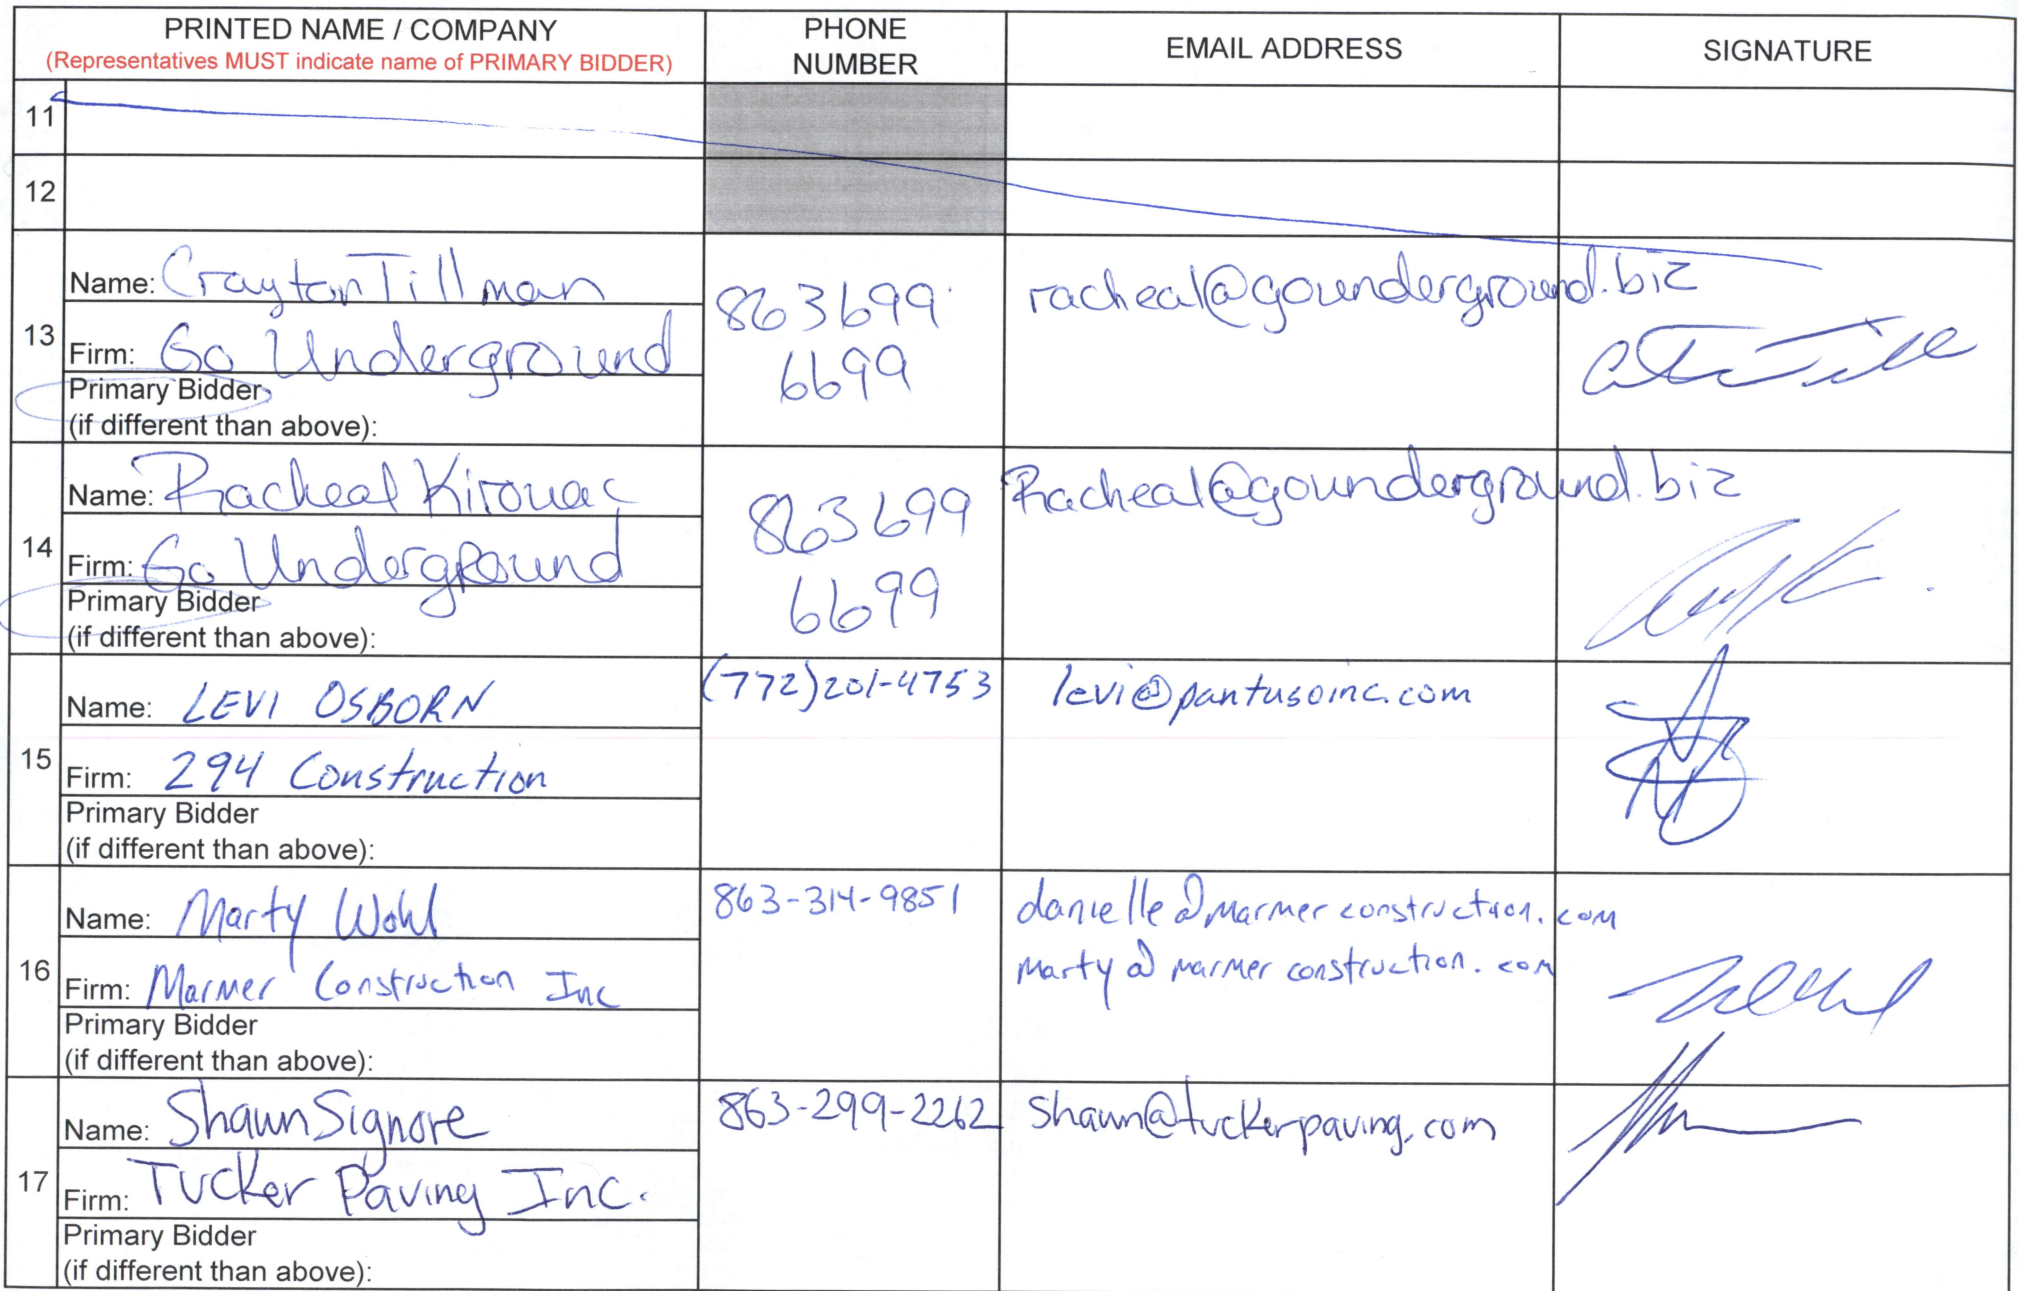 PRINTED NAME / COMPANY
(Representatives MUST indicate name of PRIMARY BIDDER)
PHONE
NUMBER
EMAIL ADDRESS
SIGNATURE
11
12
13
Name: Crayton Tillman
Firm: Go Underground
Primary Bidder
(if different than above):
863 699
6699
racheal@gounderground.biz
14
Name: Racheal Kirouac
Firm: Go Underground
Primary Bidder
(if different than above):
863 699
6699
Racheal@gounderground.biz
15
Name: LEVI OSBORN
Firm: 294 Construction
Primary Bidder
(if different than above):
(772)201-4753
levi@pantusoinc.com
16
Name: Marty Wohl
Firm: Marmer Construction Inc
Primary Bidder
(if different than above):
863-314-9851
danielle@marmerconstruction.com
marty@marmerconstruction.com
17
Name: Shawn Signore
Firm: Tucker Paving Inc.
Primary Bidder
(if different than above):
863-299-2262
Shawn@tuckerpaving.com